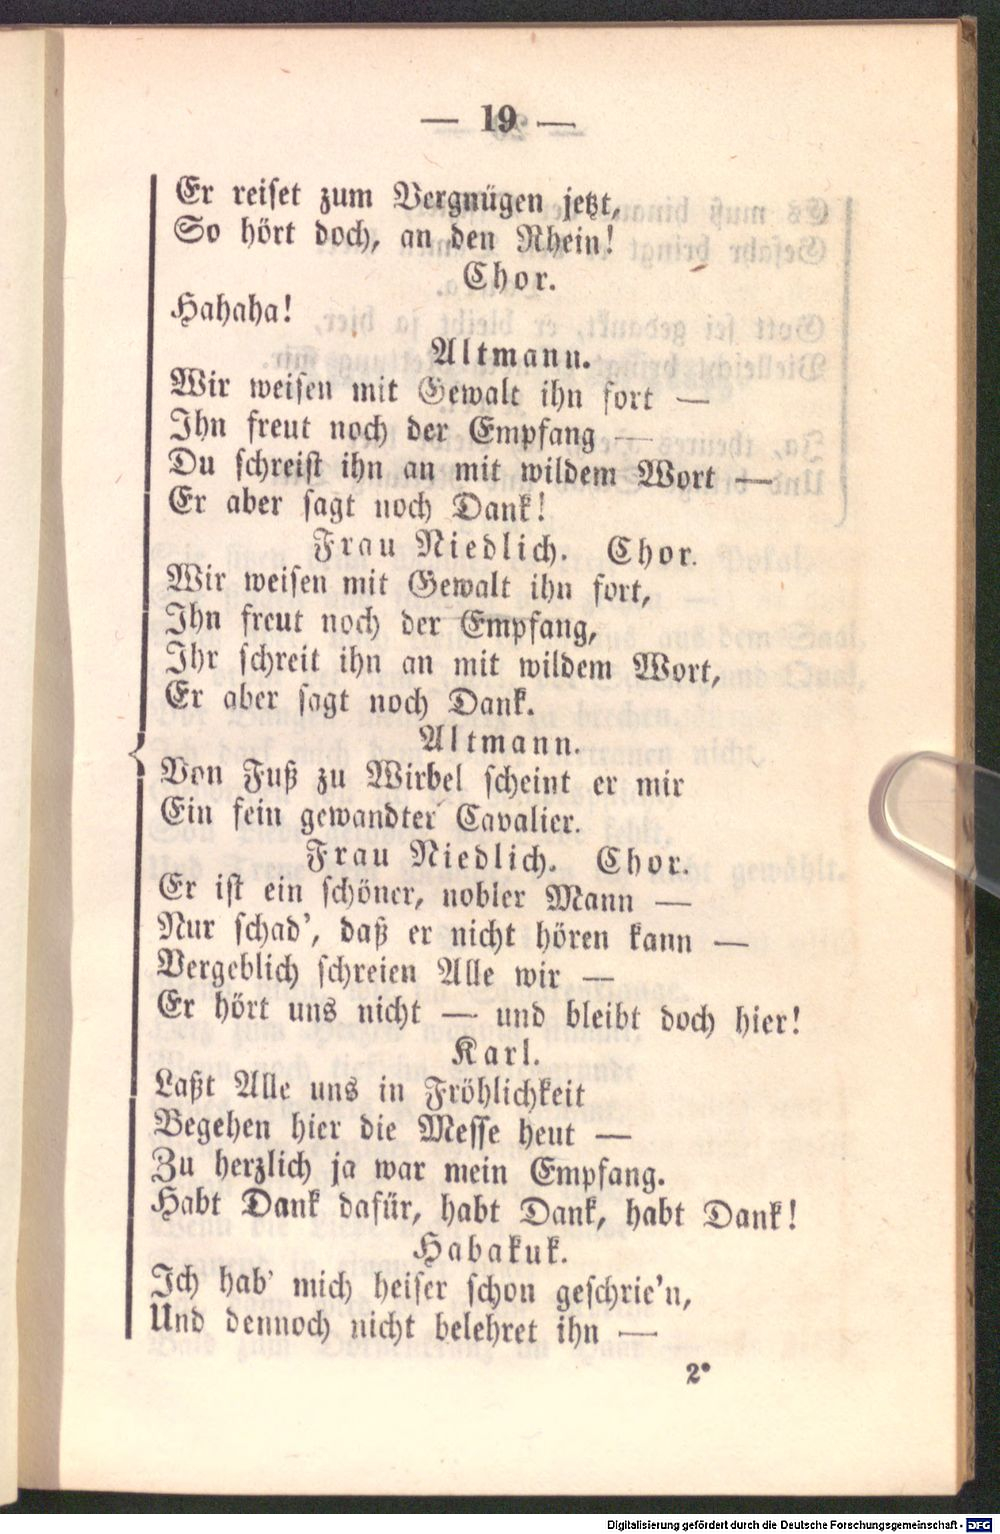 — 19 —
Er reiset zum Vergnügen jetzt,
So hört doch, an den Rhein!
Chor.
Hahaha!
Altmann.
Wir weisen mit Gewalt ihn fort —
Ihn freut noch der Empfang —
Du schreist ihn an mit wildem Wort —
Er aber sagt noch Dank!
Frau Niedlich. Chor.
Wir weisen mit Gewalt ihn fort,
Ihn freut noch der Empfang,
Ihr schreit ihn an mit wildem Wort,
Er aber sagt noch Dank.
Altmann.
Von Fuß zu Wirbel scheint er mir
Ein fein gewandter Cavalier.
Frau Niedlich. Chor.
Er ist ein schöner, nobler Mann —
Nur schad', daß er nicht hören kann —
Vergeblich schreien Alle wir —
Er hört uns nicht — und bleibt doch hier!
Karl.
Laßt Alle uns in Fröhlichkeit
Begehen hier die Messe heut —
Zu herzlich ja war mein Empfang.
Habt Dank dafür, habt Dank, habt Dank!
Habakuk.
Ich hab' mich heiser schon geschrie'n,
Und dennoch nicht belehret ihn —
2*
Digitalisierung gefördert durch die Deutsche Forschungsgemeinschaft - DFG